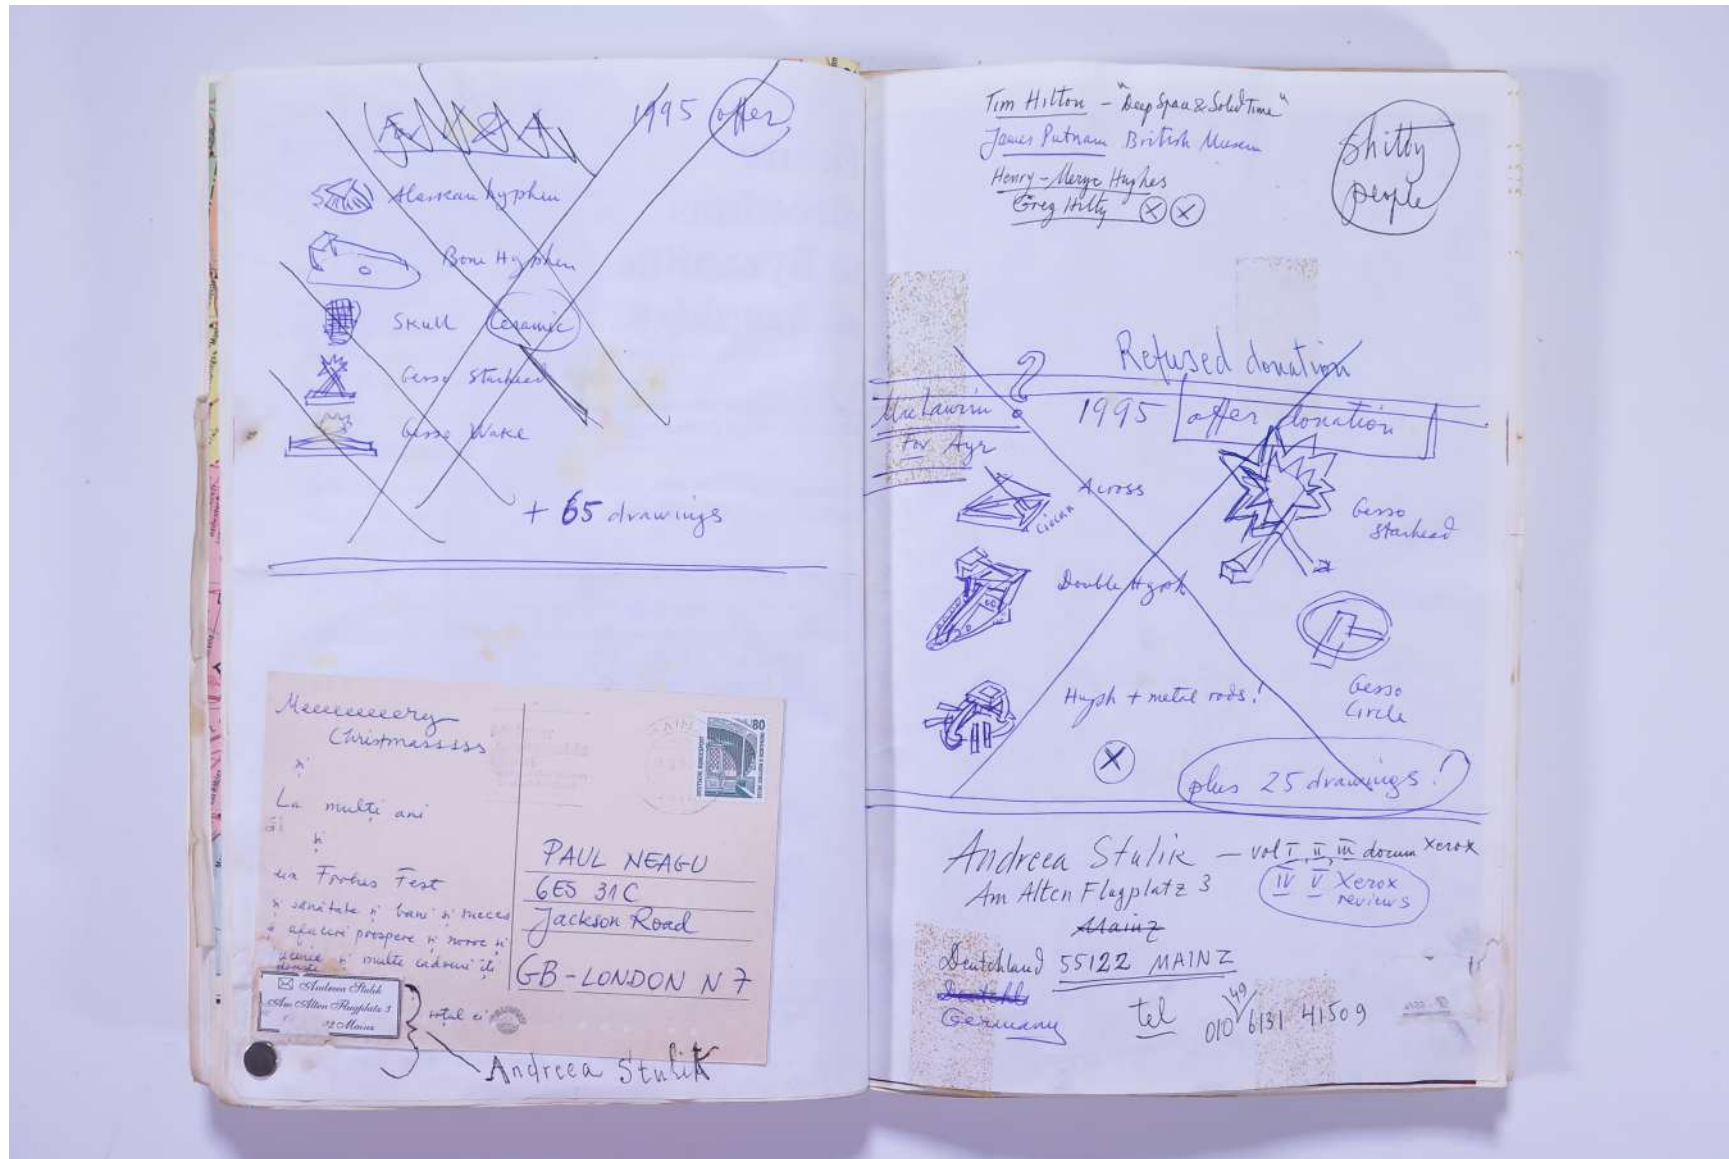 1995 offer
Alaskan hyphen
Bone Hyphen
Skull Ceramic
Gesso Starhead
Gesso Wake
+ 65 drawings
Meeeeeeeery
Christmasssss
și
La mulți ani
și
un Frohes Fest
și sănătate și bani și succes
și afaceri prospere și noroc și
și multe cadouri îți
80
DEUTSCHE BUNDESPOST
PAUL NEAGU
6E5 31C
Jackson Road
GB-LONDON N7
Andreea Stulik
Am Alten Flugplatz 3
Mainz
Andreea Stulik
Tim Hilton - "Deep Space & Solid Time"
James Putnam British Museum
Henry-Meryc Hughes
Greg Hilty
shitty
people
Refused donation
MacLaurin
For Ayr
1995 offer donation
Across
Gesso
Starhead
Double Hyph
Hyph + metal rods!
Gesso
Circle
plus 25 drawings!
Andreea Stulik - vol I, II, III docum Xerox
IV V Xerox
reviews
Am Alten Flugplatz 3
Mainz
Deutchland 55122 MAINZ
Deutchl
Germany
tel 010 49 6131 41509